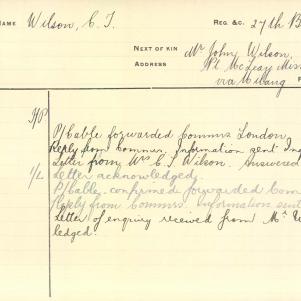 NAME Wilson, C. T. REG. &C. 27th B
NEXT OF KIN Mr John Wilson,
ADDRESS Pt McLeay Miss
via Milang
P/Cable forwarded Commrs London.
Reply from Commrs. Information sent
Letter from Mrs C. T. Wilson. Answered
Letter acknowledged.
P/Cable. confirmed forwarded Com
Reply from Commrs. Information sent
Letter of enquiry received from Mr W
ledged.